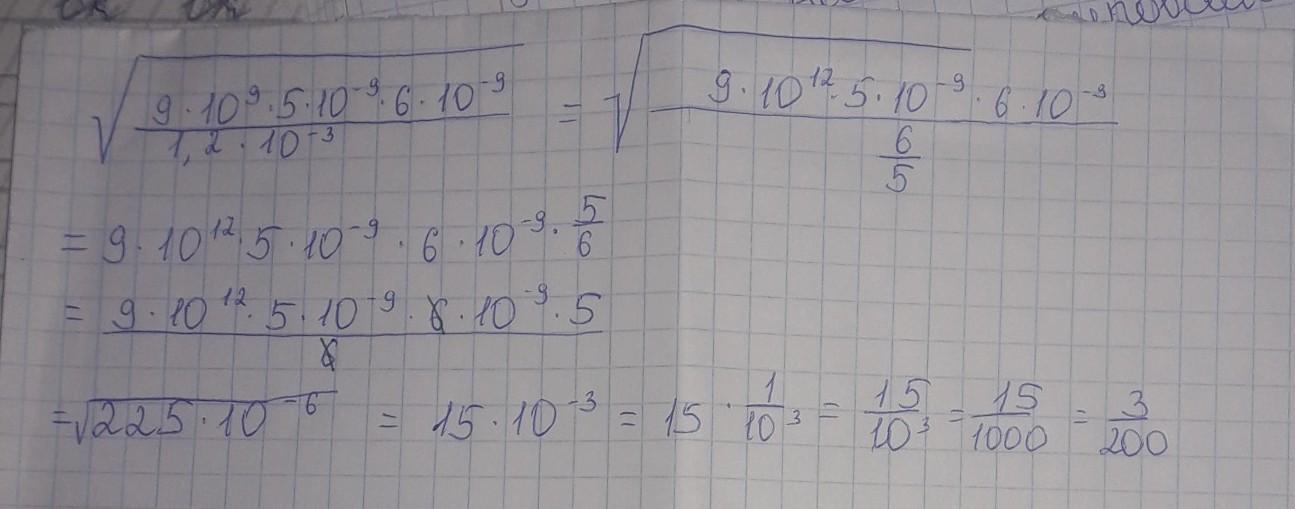 √(9·10⁹·5·10⁻⁹·6·10⁻⁹ / 1,2·10⁻³) = √(9·10¹²·5·10⁻⁹·6·10⁻⁹ / (6/5))
= 9·10¹²·5·10⁻⁹·6·10⁻⁹·5/6
= 9·10¹²·5·10⁻⁹·6·10⁻⁹·5 / 6
=√(225·10⁻⁶) = 15·10⁻³ = 15·1/10³ = 15/10³ = 15/1000 = 3/200